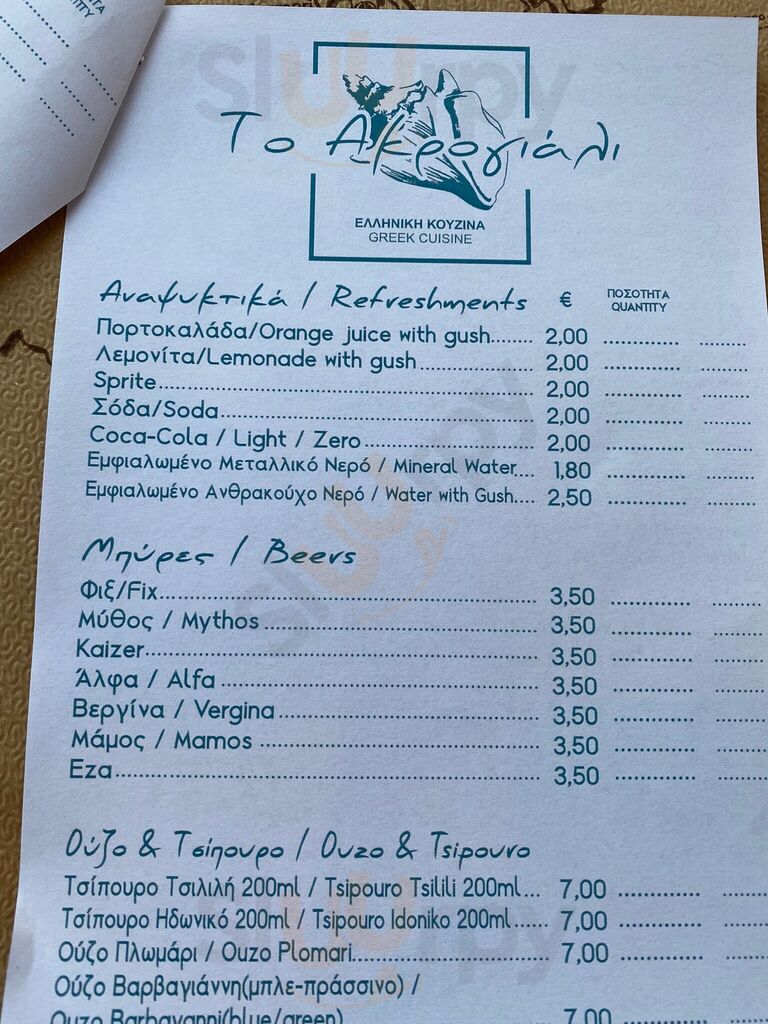 ΠΟΣΟΤΗΤΑ
QUANTITY
Το Ακρογιάλι
ΕΛΛΗΝΙΚΗ ΚΟΥΖΙΝΑ
GREEK CUISINE
Αναψυκτικά / Refreshments € ΠΟΣΟΤΗΤΑ QUANTITY
Πορτοκαλάδα/Orange juice with gush....... 2,00 ............. .........
Λεμονίτα/Lemonade with gush................... 2,00 ............. .........
Sprite.................................................................. 2,00 ............. .........
Σόδα/Soda........................................................ 2,00 ............. .........
Coca-Cola / Light / Zero.............................. 2,00 ............. .........
Εμφιαλωμένο Μεταλλικό Νερό / Mineral Water.... 1,80 ............. .........
Εμφιαλωμένο Ανθρακούχο Νερό / Water with Gush.... 2,50 ............. .........
Μπύρες / Beers
Φιξ/Fix.................................................................. 3,50 ............. .........
Μύθος / Mythos................................................ 3,50 ............. .........
Kaizer.................................................................... 3,50 ............. .........
Άλφα / Alfa........................................................ 3,50 ............. .........
Βεργίνα / Vergina............................................. 3,50 ............. .........
Μάμος / Mamos ................................................ 3,50 ............. .........
Εza........................................................................... 3,50 ............. .........
Ούζο & Τσίπουρο / Ouzo & Tsipouro
Τσίπουρο Τσιλιλή 200ml / Tsipouro Tsilili 200ml... 7,00 ............. .........
Τσίπουρο Ηδωνικό 200ml / Tsipouro Idoniko 200ml...... 7,00 ............. .........
Ούζο Πλωμάρι / Ouzo Plomari................................ 7,00 ............. .........
Ούζο Βαρβαγιάννη(μπλε-πράσσινο) /
Ouzo Barbayanni(blue/green) 7,00 ............. .........
sluurpy
sluurpy
sluurpy